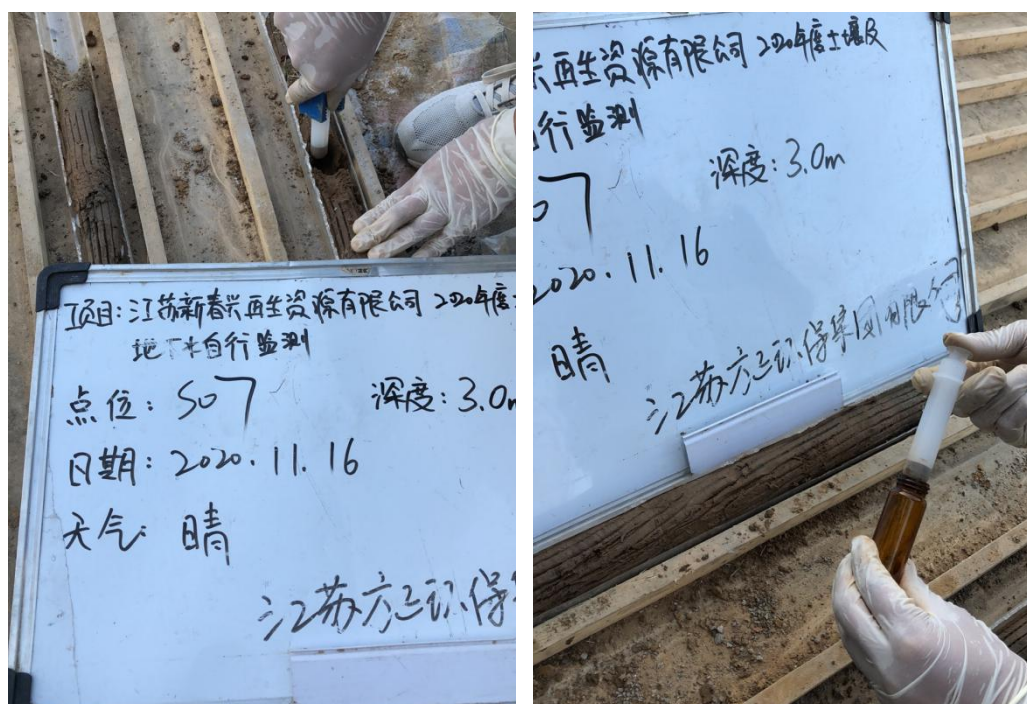 项目:江苏新春兴再生资源有限公司 2020年度土
地下水自行监测
点位: S07
深度:3.0m
日期: 2020.11.16
天气: 晴
江苏方正环保
兴再生资源有限公司 2020年度土壤及
自行监测
深度:3.0m
07
2020.11.16
晴
江苏方正环保集团有限公司